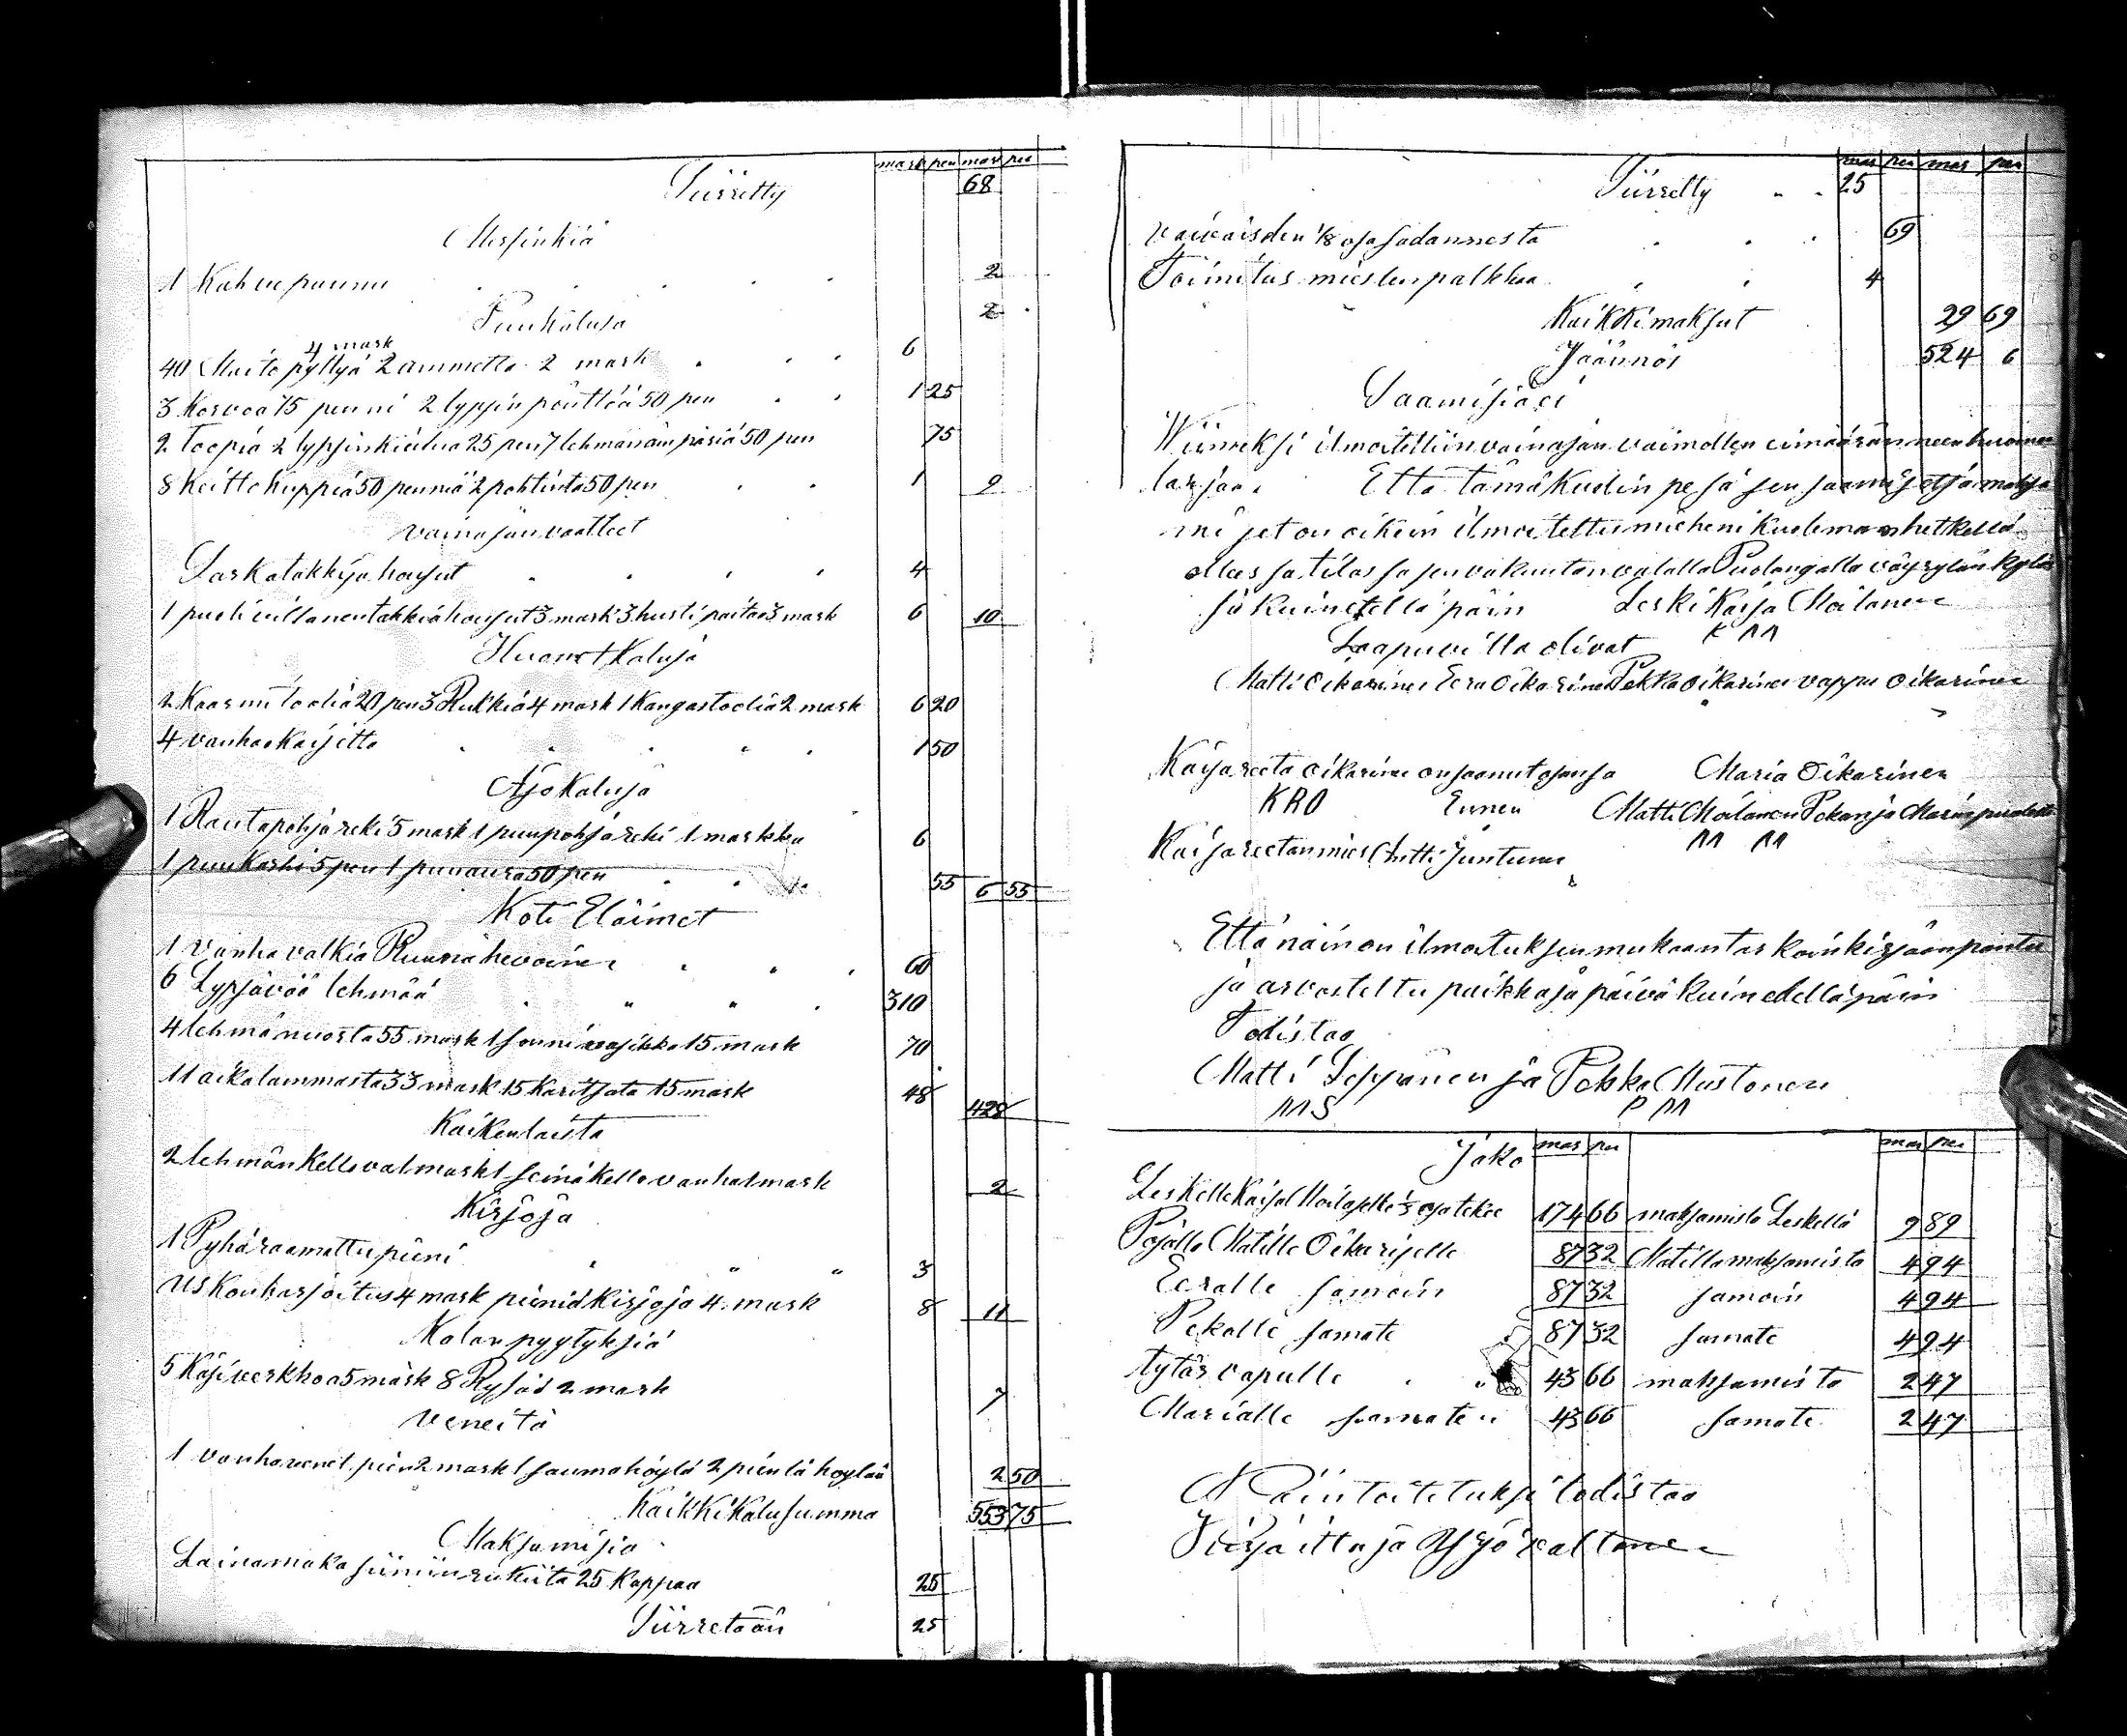 mark pen mar pen
Siirretty 68
Messinkiä
1 Kahvepannu 2
Puukaluja 2
4 mark
40 Maito pyttyä 2 ammetta 2 mark 6
3 Korvoa 75 penni 2 lypsin pönttöä 50 pen 1 25
2 Toopia 2 lypsinkiulua 25 pen 7 lehmän ämpäriä 50 pen 75
8 Keitto kuppia 50 penniä 2 pohtinta 50 pen 1 9
vainajan vaatteet
Sarkatakki ja housut 4
1 puoli villanen takki ja housut 3 mark 3 hursti paitaa 3 mark 6 10
Huonet Kaluja
2 Kaarmi toolia 20 pen 3 Rukkia 4 mark 1 Kangastoolia 2 mark 6 20
4 vanhaa Karsitta 1 50
Ajo Kaluja
1 Rautapohja reki 5 mark 1 puupohja reki 1 markka 6
1 puu Karhi 5 pen 1 puuaura 50 pen 55 6 55
Koti Eläimet
1 Vanha valkia Ruuna hevoinen 60
6 Lypsävää lehmää 310
4 lehmän vuosta 55 mark 1 sonni vasikka 15 mark 70
11 aika lammasta 33 mark 15 Karitsata 15 mark 48
428
Kaikenlaista
2 lehmän Kellova 1 mark 1 seinä kello vanha 1 mark 2
Kirjoja
1 Pyhä raamattu pieni 3
us Konharjoitus 4 mark pieniä Kirjoja 4 mark 8 11
Kalan pyytyksiä
5 Käsiverkkoa 5 mark 8 Rysää 2 mark 7
Veneitä
1 vanha venet pien 2 mark 1 sauma höylä 2 pientä höylää 2 50
Kaikki Kalu summa 553 75
Maksamisia
Lainamaka siiniin rukiita 25 Kappaa 25
Siirretään 25
mar pen mar pen
Siirretty 25
Vaivaisden 1/8 osa sadannesta 69
Toimitus miesten palkkaa 4
Kaikki maksut 29 69
Jäännös 524 6
Saamisiaei
Wiimeksi ilmoitettiin vainajan vaimollen eimäärän neen huomen
larjaa. Että tämä Kuolin pesä sen saamiset ja maksa
miset on oikein ilmoitettu mieheni Kuoleman hetkellä
ollees sa tilas sa sen vakuutan valalla Puolangalla väyrylän Kyläs
sä Kuin etellä päin Leski Kaisa Moilanen
K M
Saapuvilla olivat
Matti Oikarinen Eera Oikarinen Pekka Oikarinen vappu Oikarinen
Kaisa reeta Oikarinen on saanut osansa Maria Oikarinen
KRO Ennen Matti Moilanen Pekan ja Marian puolesta
M M
Kaisa reetan mies Antti Juntunen
Että näin on ilmoituksen mukaan tar koin kirjaan pantu
ja arvosteltu paikka ja päivä Kuin edellä päin
Todistaa
Matti Seppänen ja Pekka Mustonen
MS P M
Jako mar pen mar pen
Leskelle Kaisa Moilaselle 1/3 osa tekee 174 66 maksamista Leskellä 9 89
Pojalle Matille Oikariselle 87 32 Matilla maksamista 4 94
Eeralle samoin 87 32 samoin 4 94
Pekalle samate 87 32 samate 4 94
tytär vapulle 43 66 maksamista 2 47
Marialle samaten 43 66 samate 2 47
Näin toitetuksi todistaa
Kirjoittaja Yrjö valtanen